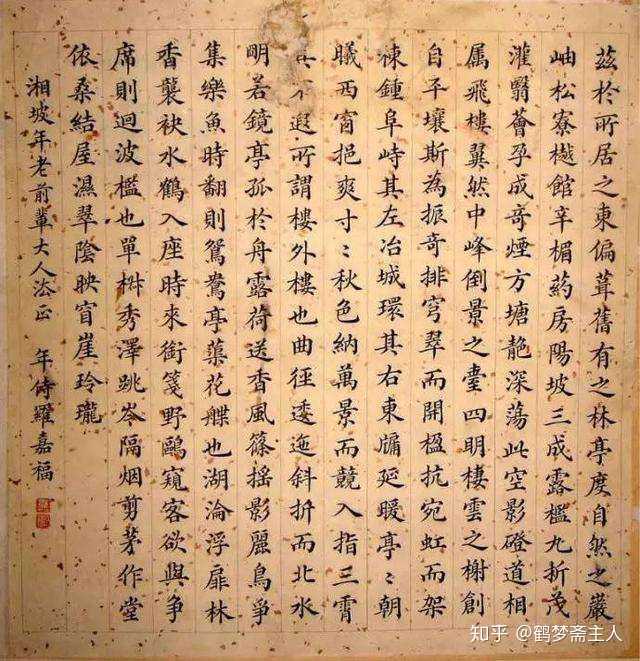 茲於所居之東偏葺舊有之林亭度自然之巖
岫松寮檖館辛楣葯房陽坡三成露檻九折茂
灌翳薈孕成奇煙方塘靘深蕩此空影磴道相
属飛樓翼然中峰倒景之臺四明棲雲之榭創
自平壤斯為振奇排穹翠而開楹抗宛虹而架
棟鍾阜峙其左冶城環其右東牖延暖亭〻朝
曦西窗挹爽寸〻秋色納萬景而競入指三霄
不遐所謂樓外樓也曲徑逶迤斜折而北水
明若鏡亭孤於舟露荷送香風篠搖影麗鳥爭
集樂魚時翻則鴛鴦亭蕖花艓也湖淪浮扉林
香襲袂水鶴入座時來銜箋野鷗窺客欲與爭
席則迴波檻也單椒秀澤跳岑隔烟剪茅作堂
依桑結屋濕翠陰映窅崖玲瓏
湘坡年老前輩大人法正 年侍羅嘉福
知乎 @鹤梦斋主人